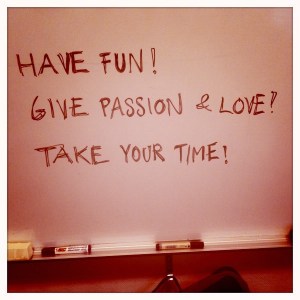 HAVE FUN!
GIVE PASSION & LOVE!
TAKE YOUR TIME!